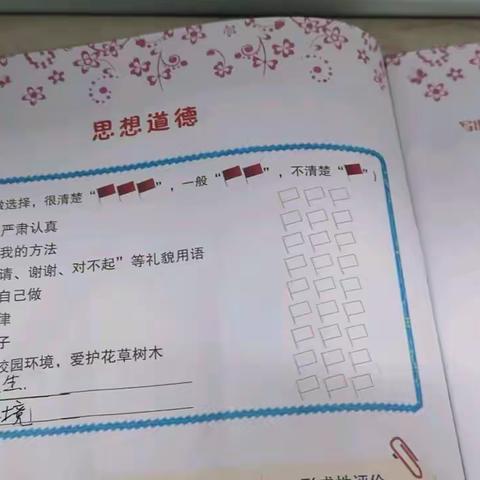 思想道德
选择，很清楚“”，一般“”，不清楚“”）
严肃认真
我的方法
请、谢谢、对不起”等礼貌用语
自己做
律
子
校园环境，爱护花草树木
生.
境